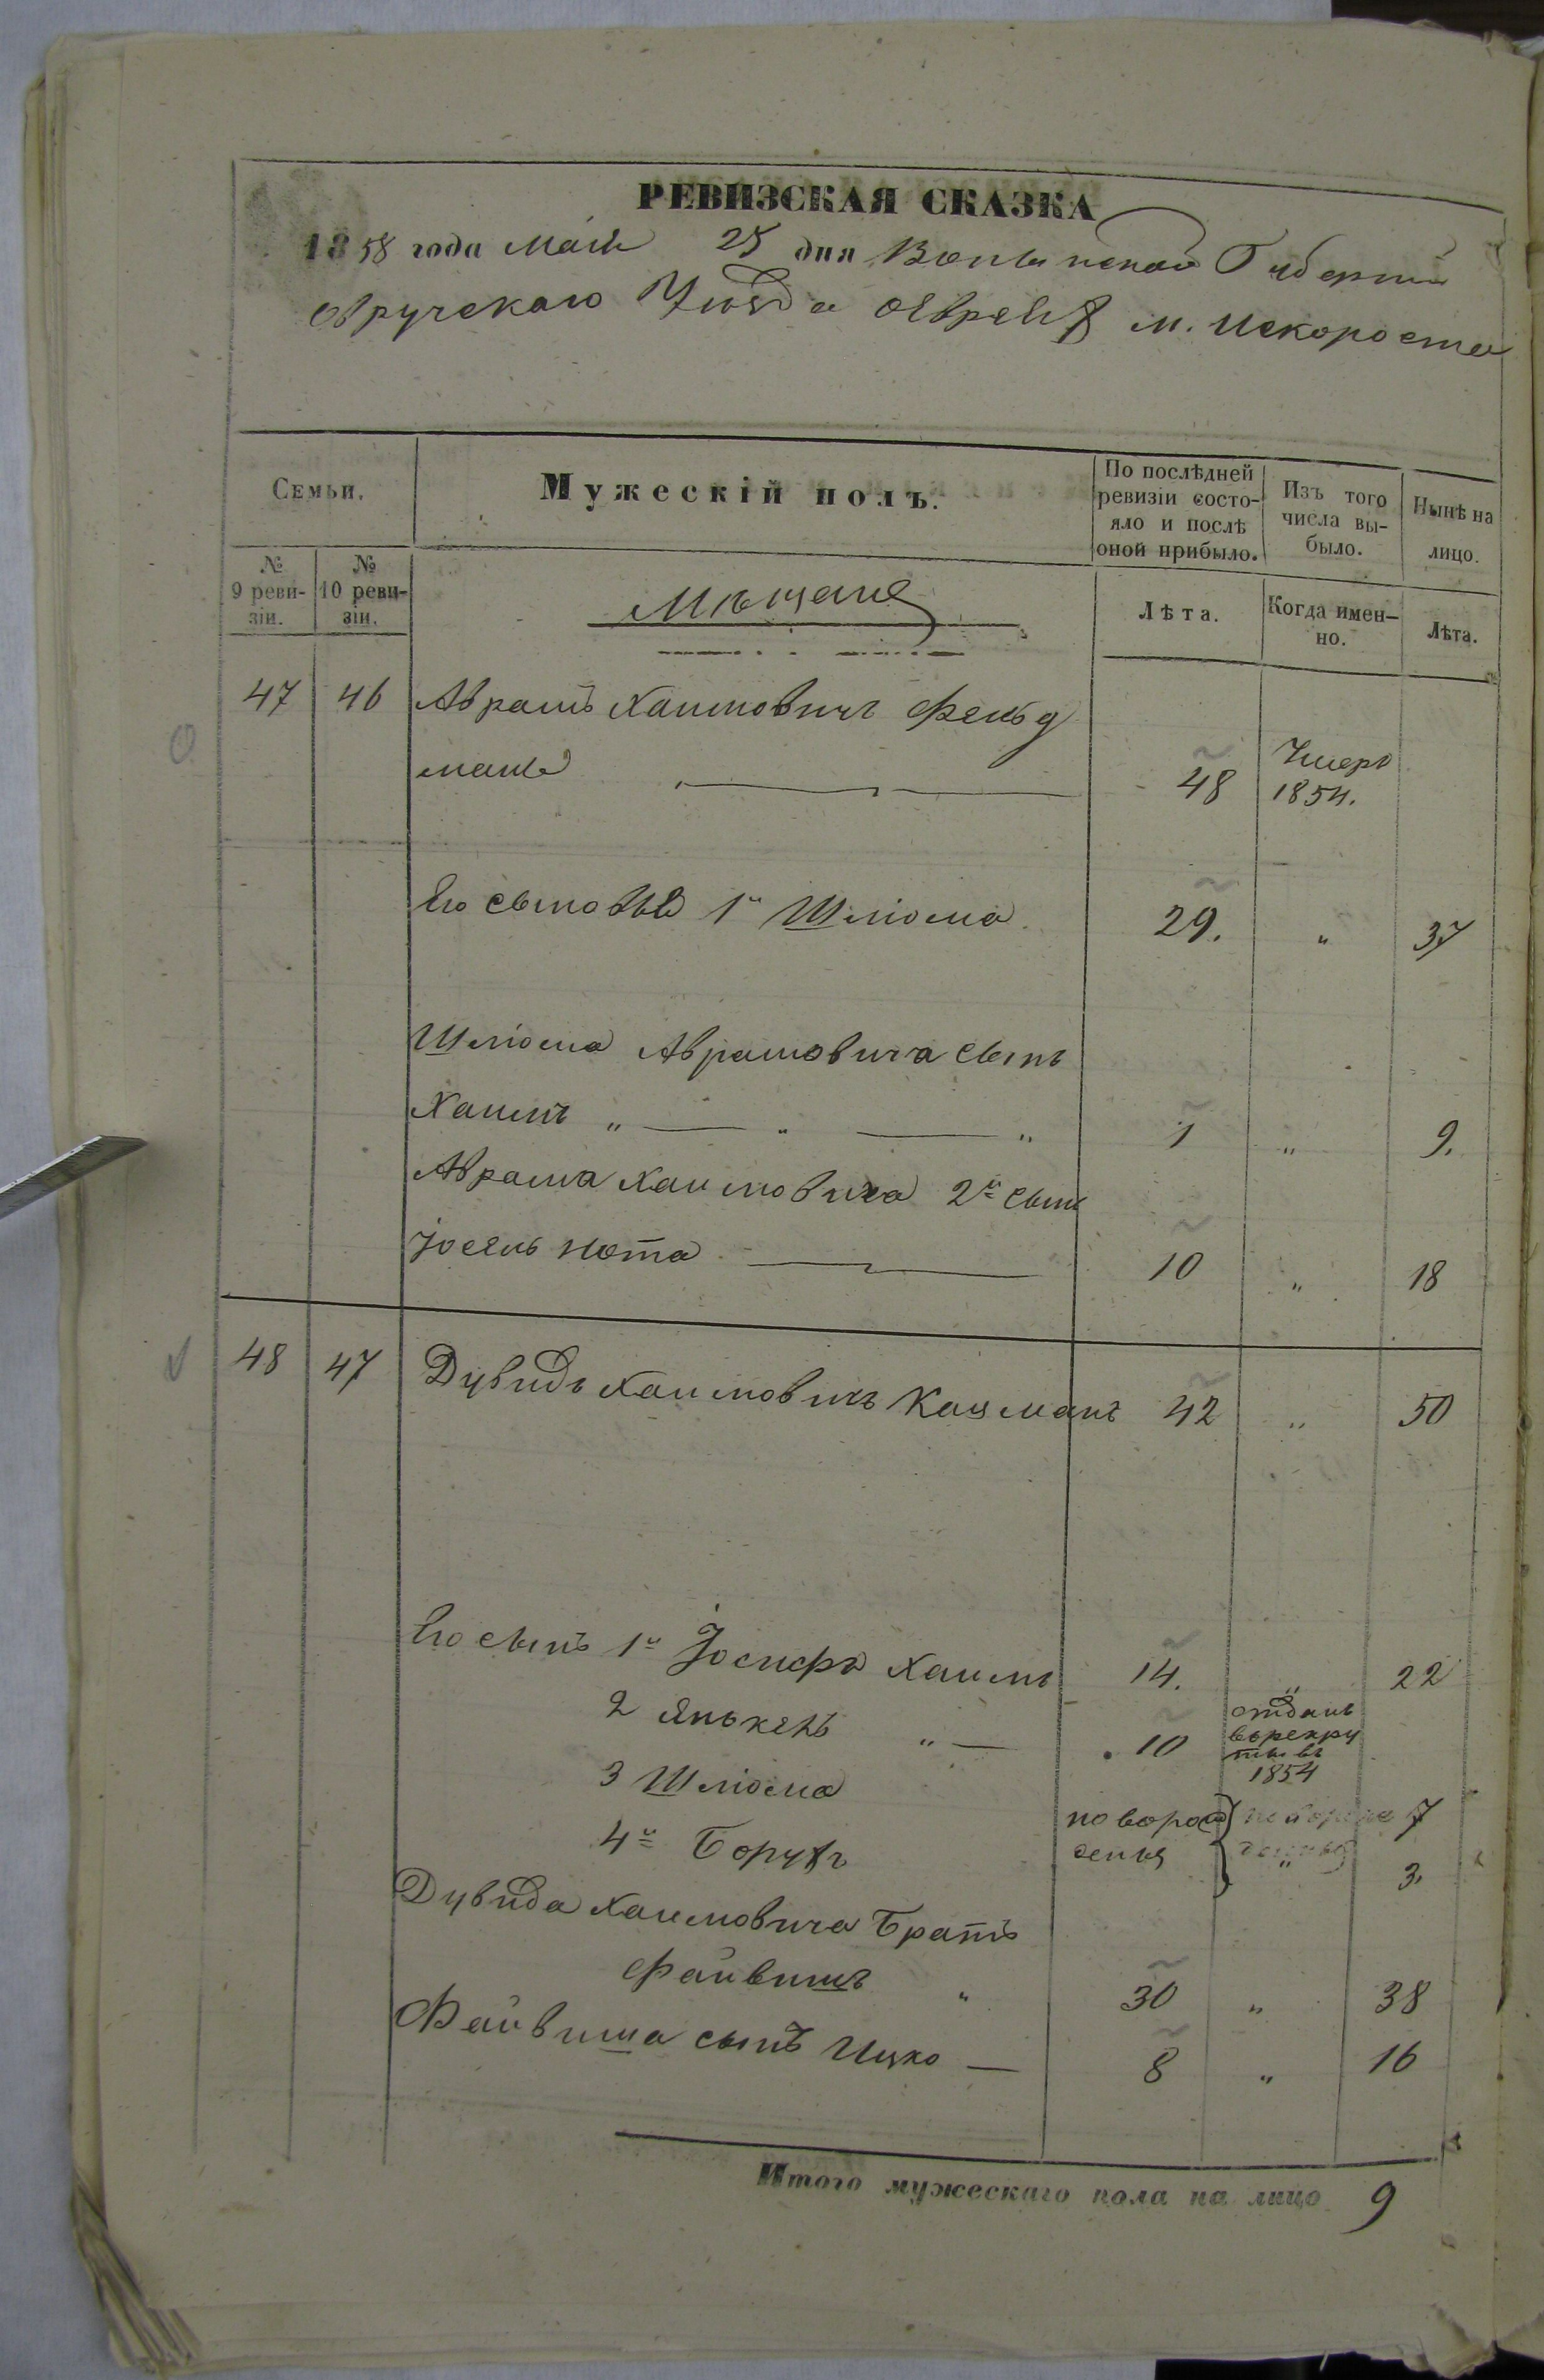 РЕВИЗСКАЯ СКАЗКА
1858 года Мая 25 дня Волынской Губерніи
Овручскаго Уѣзда Оеврей м. Искороста
Семьи.
Мужескій полъ.
По послѣдней ревизіи состояло и послѣ оной прибыло.
Изъ того числа выбыло.
Нынѣ на лицо.
№ 9 ревизіи.
№ 10 ревизіи.
Мѣщане
Лѣта.
Когда именно.
Лѣта.
47 46 Аврамъ Хаимовичъ Фельд
манъ 48 Умеръ 1854.
Его сыновья 1й Шліома 29. " 37
Шліома Аврамовича сынъ
Хаимъ " " " 1 " 9.
Аврама Хаимовича 2й сынъ
Іосель Нота 10 " 18
48 47 Дувидъ Хаимовичъ Кацманъ 42 " 50
Его сынъ 1й Іосифъ Хаимъ 14. " 22
2 Янькель " 10 отданъ
въ рекру
ты въ
1854
3 Шліома новорож 7
4й Борухъ денныя " 3.
Дувида Хаимовича Братъ
Файвишъ " 30 " 38
Файвиша сынъ Ицко 8 " 16
Итого мужескаго пола на лицо 9